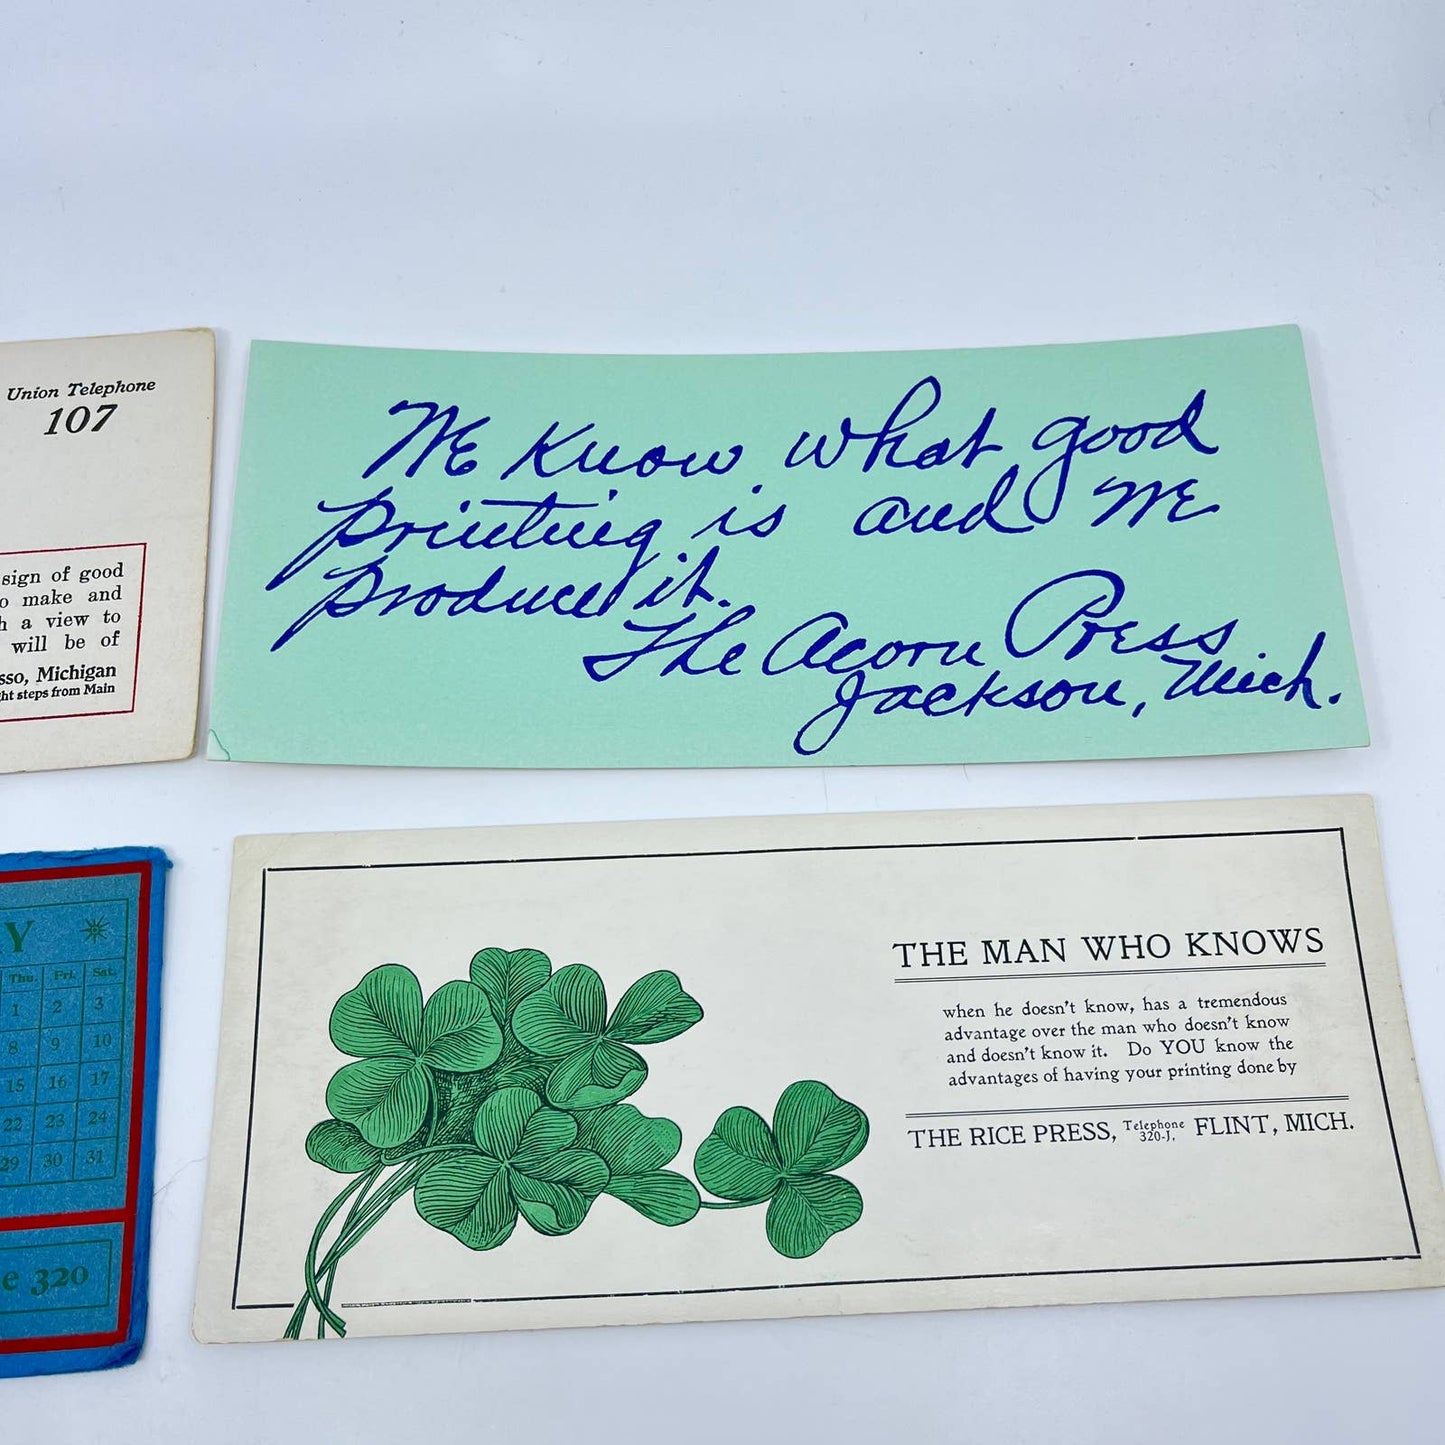 Union Telephone
107
sign of good
o make and
h a view to
will be of
sso, Michigan
ht steps from Main
We Know what good
printing is and We
produce it.
The Acorn Press
Jackson, Mich.
Y
Thu. Fri. Sat.
1 2 3
8 9 10
15 16 17
22 23 24
29 30 31
e 320
THE MAN WHO KNOWS
when he doesn't know, has a tremendous
advantage over the man who doesn't know
and doesn't know it. Do YOU know the
advantages of having your printing done by
THE RICE PRESS, Telephone 320-J, FLINT, MICH.